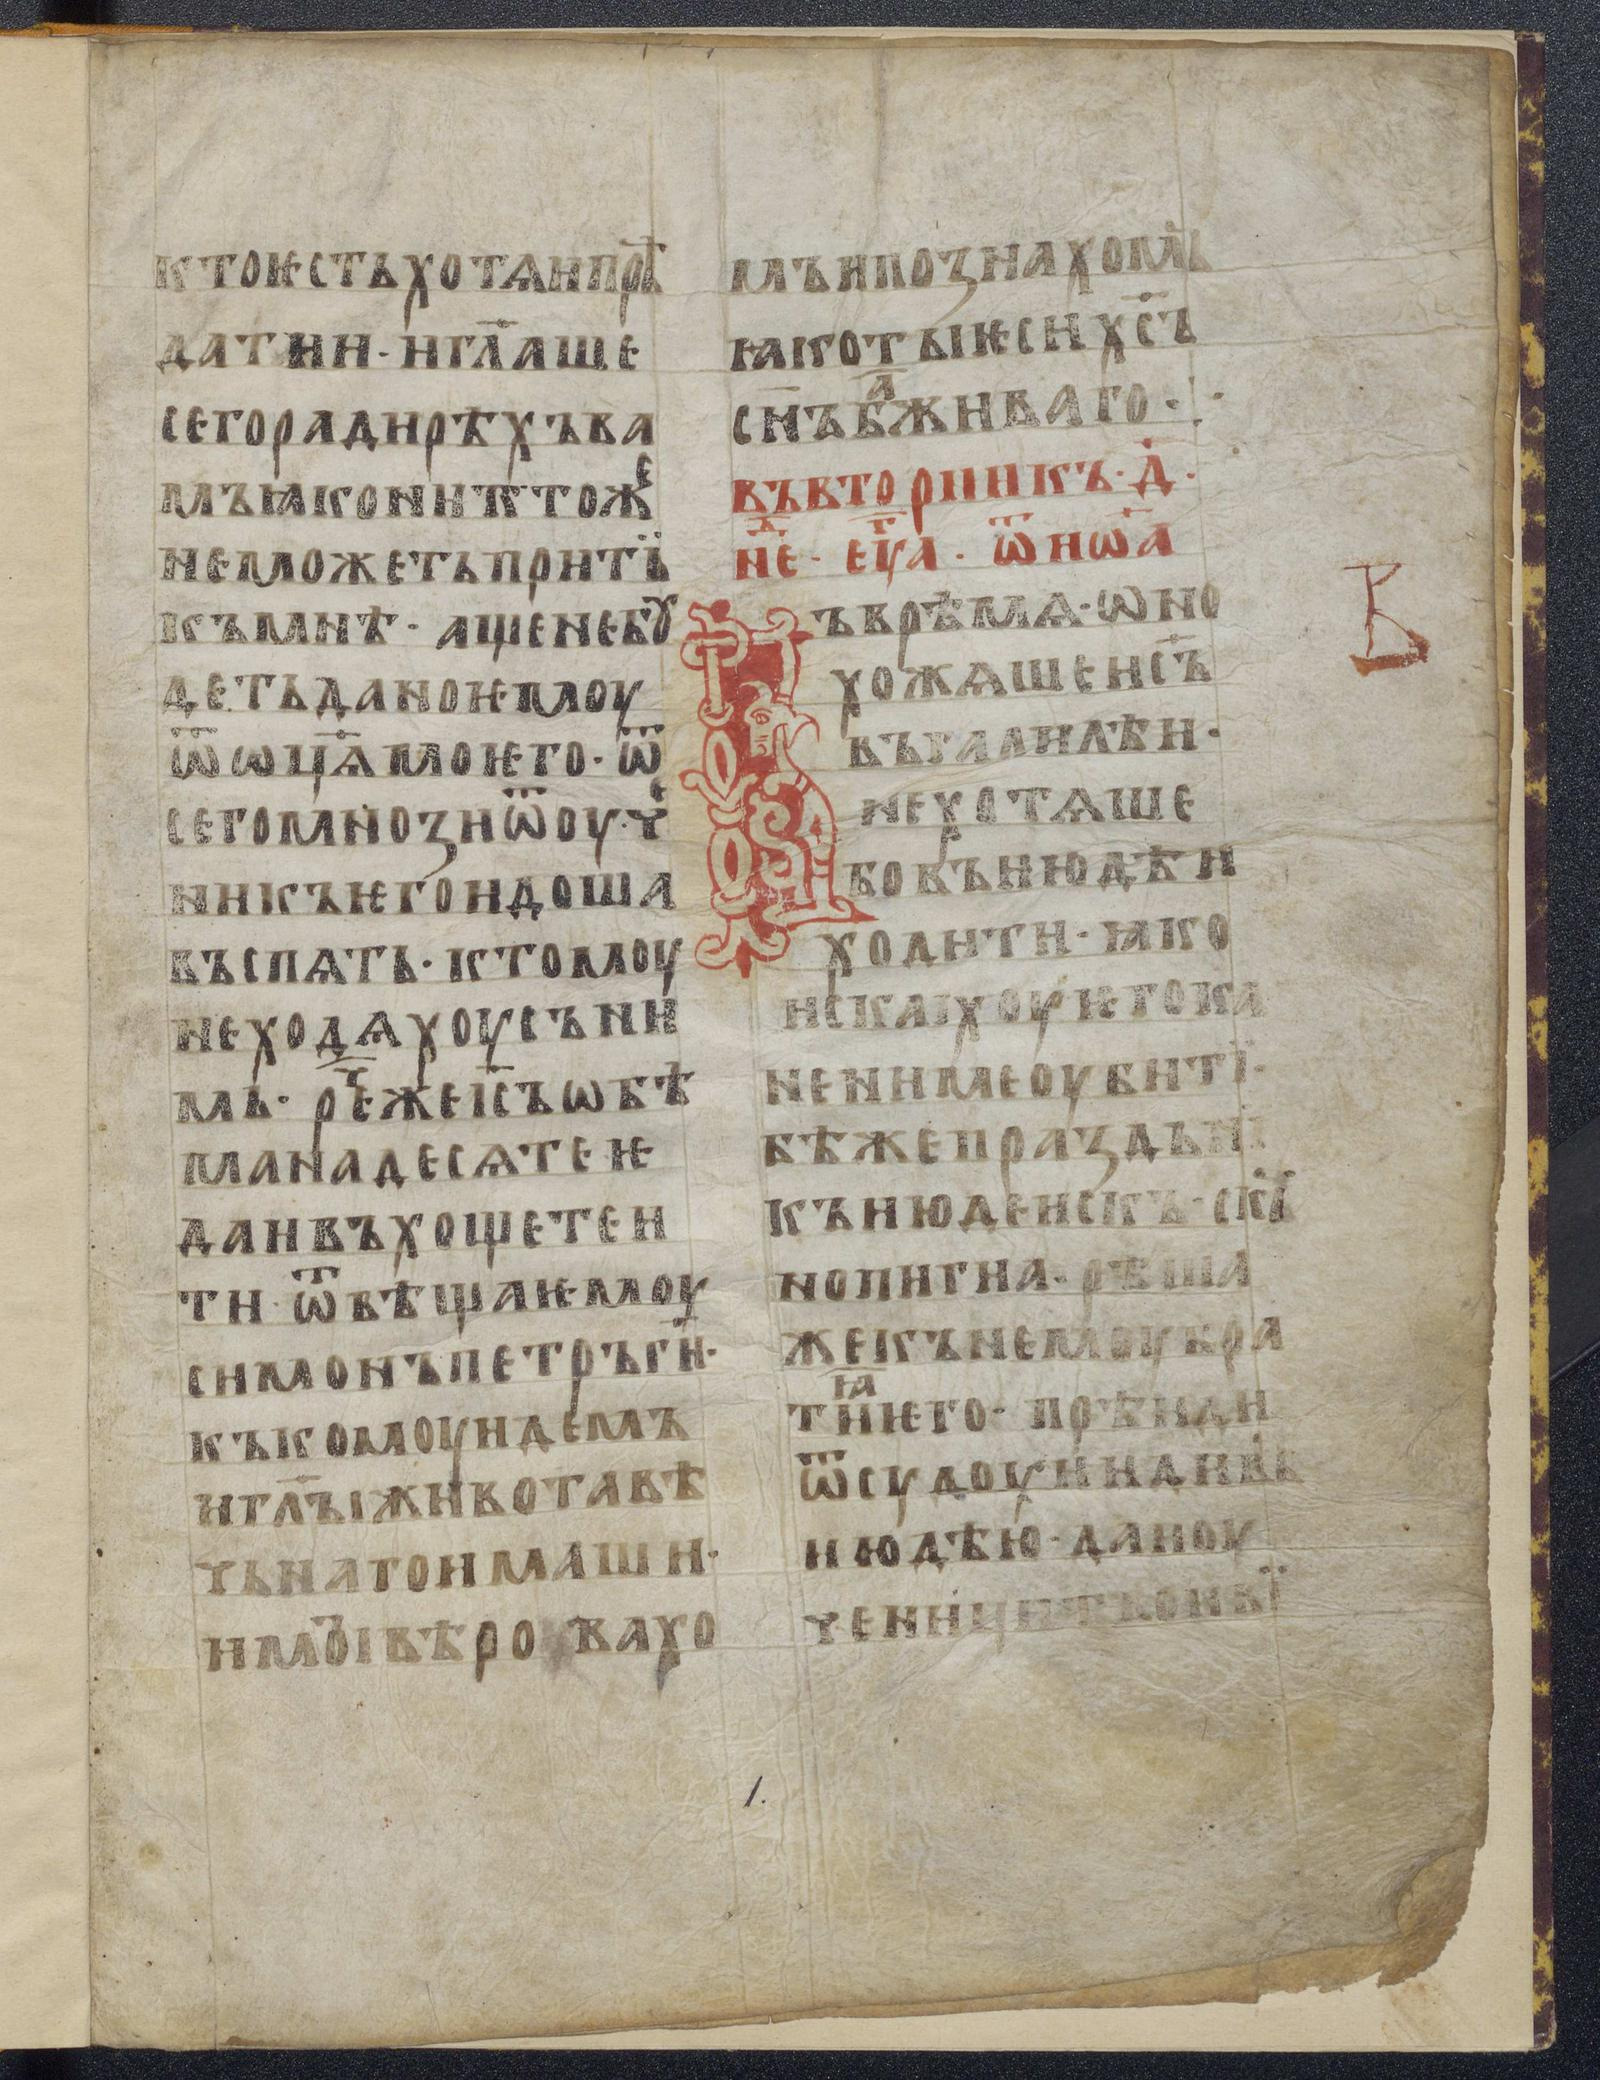 кто ѥсть хотѧи прѣ
дати и · и гл҃аше
сего ради рѣхъ ва
мъ ꙗко никтоже
не можеть прити
къ мнѣ · аще не бꙋ
деть дано ѥмоу
ѿ ѡц҃ѧ моѥго · ѿ
сего мнози ѿ оуче
никъ ѥго идоша
въспѧть · к томоу
не ходѧхоу съ ни
мь · реч҃же іс҃ъ ѡбѣ
манадесѧте ѥ
да и въ хощете и
ти · ѿвѣща ѥмоу
симонъ петръ г҃и ·
къ комоу идемъ
и гл҃ъі живота вѣ
чьнаго имаши ·
и мъі вѣровахо
мъ и познахомъ
ꙗко тъі ѥси х҃съ
сн҃ъ б҃а живаго ·
въ вторникъ · д҃ ·
нед҃ · еѵаг҃ · ѿ иѡ҃а
ъ врѣмѧ · ѡно
хожѧше іс҃ъ
въ галилѣи ·
не хотѧше
бо въ июдѣи
ходити · ꙗко
искаіхоу ѥго ка
мениѥмь оубити ·
бѣ же праздьни
къ июдеискъ · ски
нопигиа · рѣша
же къ немоу бра
тиꙗ ѥго · прѣиди
ѿсꙋдоу и иди въ
июдѣю · да и оу
ченици твои ви
В
1.